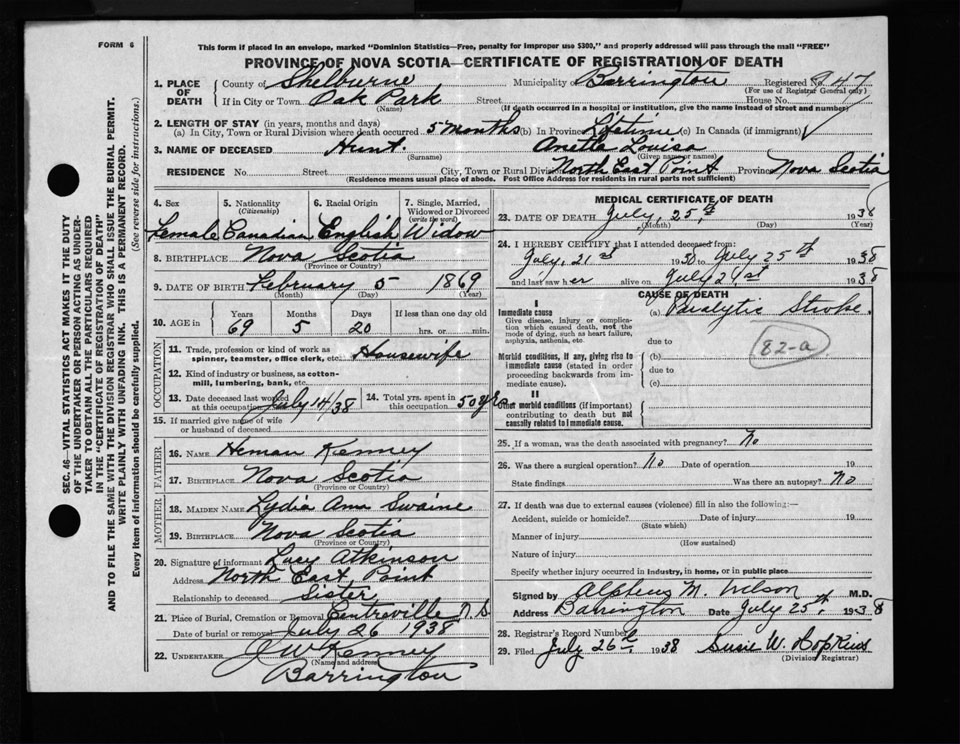 FORM 6
This form if placed in an envelope, marked "Dominion Statistics—Free, penalty for improper use $300," and properly addressed will pass through the mail "FREE"
PROVINCE OF NOVA SCOTIA—CERTIFICATE OF REGISTRATION OF DEATH
SEC. 46—VITAL STATISTICS ACT MAKES IT THE DUTY
OF THE UNDERTAKER OR PERSON ACTING AS UNDER-
TAKER TO OBTAIN ALL THE PARTICULARS REQUIRED
IN THE "CERTIFICATE OF REGISTRATION OF DEATH"
AND TO FILE THE SAME WITH THE DIVISION REGISTRAR WHO SHALL ISSUE THE BURIAL PERMIT.
WRITE PLAINLY WITH UNFADING INK. THIS IS A PERMANENT RECORD.
Every item of information should be carefully supplied. (See reverse side for instructions.)
1. PLACE OF DEATH County of Shelburne Municipality of Barrington Registered No. 947
(For use of Registrar General only)
If in City or Town Oak Park Street House No.
(Name) (If death occurred in a hospital or institution, give the name instead of street and number)
2. LENGTH OF STAY (in years, months and days)
(a) In City, Town or Rural Division where death occurred 5 months (b) In Province Lifetime (c) In Canada (if immigrant)
3. NAME OF DECEASED Hunt. Anetta Louisa
(Surname) (Given name or names)
RESIDENCE No. Street City, Town or Rural Div. North East Point Province Nova Scotia
(Residence means usual place of abode. Post Office Address for residents in rural parts not sufficient)
4. Sex 5. Nationality (Citizenship) 6. Racial Origin 7. Single, Married, Widowed or Divorced (write the word)
Female Canadian English Widow
8. BIRTHPLACE Nova Scotia
(Province or Country)
9. DATE OF BIRTH February 5 1869
(Month) (Day) (Year)
10. AGE in Years Months Days If less than one day old
69 5 20 hrs. or min.
OCCUPATION
11. Trade, profession or kind of work as spinner, teamster, office clerk, etc. Housewife
12. Kind of industry or business, as cotton-mill, lumbering, bank, etc.
13. Date deceased last worked at this occupation July 14/38 14. Total yrs. spent in this occupation 50 yrs
15. If married give name of wife or husband of deceased
FATHER
16. NAME Heman Kenney
17. BIRTHPLACE Nova Scotia
(Province or Country)
MOTHER
18. MAIDEN NAME Lydia Ann Swaine
19. BIRTHPLACE Nova Scotia
(Province or Country)
20. Signature of informant Lucy Atkinson
Address North East Point
Relationship to deceased Sister
21. Place of Burial, Cremation or Removal Centreville N.S
Date of burial or removal July 26 1938
22. UNDERTAKER J W Kenney
(Name and address)
Barrington
MEDICAL CERTIFICATE OF DEATH
23. DATE OF DEATH July, 25th 1938
(Month) (Day) (Year)
24. I HEREBY CERTIFY that I attended deceased from:
July, 21st 1930 to July 25th 1938
and last saw her alive on July 21st 1938
CAUSE OF DEATH
I
Immediate cause (a) Paralytic Stroke.
Give disease, injury or complication which caused death, not the mode of dying, such as heart failure, asphyxia, asthenia, etc.
due to
82-a
Morbid conditions, if any, giving rise to immediate cause (stated in order proceeding backwards from immediate cause).
(b)
due to
(c)
II
Other morbid conditions (if important) contributing to death but not causally related to immediate cause.
25. If a woman, was the death associated with pregnancy? No
26. Was there a surgical operation? No Date of operation 19
State findings Was there an autopsy? No
27. If death was due to external causes (violence) fill in also the following:—
Accident, suicide or homicide? Date of injury 19
(State which)
Manner of injury
(How sustained)
Nature of injury
Specify whether injury occurred in industry, in home, or in public place
Signed by Alpheus M. Wilson M.D.
Address Barrington Date July 25th 1938
28. Registrar's Record Number
29. Filed July 26th 1938 Susie W. Hopkins
(Division Registrar)